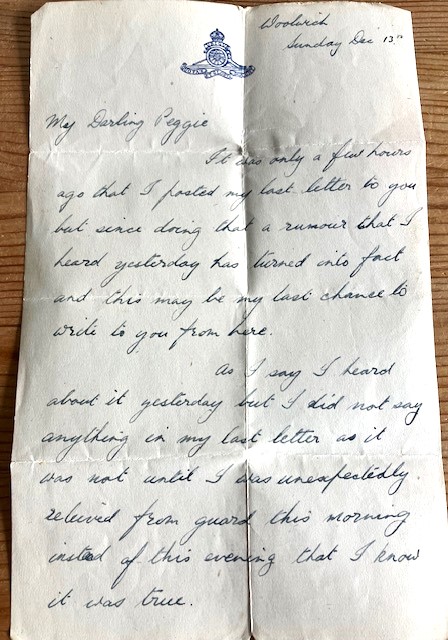 Woolwich
Sunday Dec 13th
My Darling Peggie
It was only a few hours
ago that I posted my last letter to you
but since doing that a rumour that I
heard yesterday has turned into fact
and this may be my last chance to
write to you from here.
As I say I heard
about it yesterday but I did not say
anything in my last letter as it
was not until I was unexpectedly
releived from guard this morning
instead of this evening that I know
it was true.